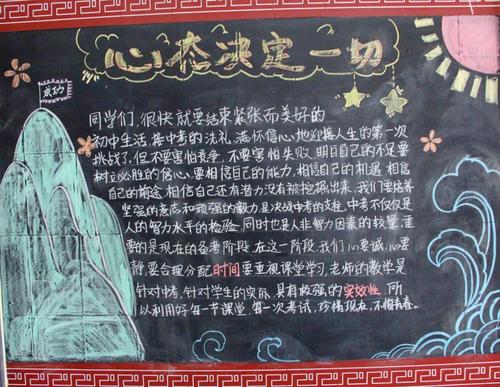 心态决定一切
成功
同学们，很快就要结束紧张而美好的
初中生活，接中考的洗礼，满怀信心地迎接人生的第一次
挑战了，但不要害怕竞争，不要害怕失败，明目自己的不足要
树立必胜的信心，要相信自己的能力，相信自己的机遇，相信
自己的前途，相信自己还有潜力没有被挖掘出来，我们要培养
坚强的意志和顽强的毅力，是决战中考的支柱，中考不仅仅是
人的智力水平的检验，同时也是人非智力因素的较量，重
要的是现在的备考阶段，在这一阶段，我们心要诚，心要
静，要合理分配时间要重视课堂学习，老师的教学是
针对中考，针对学生的实际，具有较强的实效性，所
以利用好每一节课堂，每一次考试，珍惜现在，不悔青春。